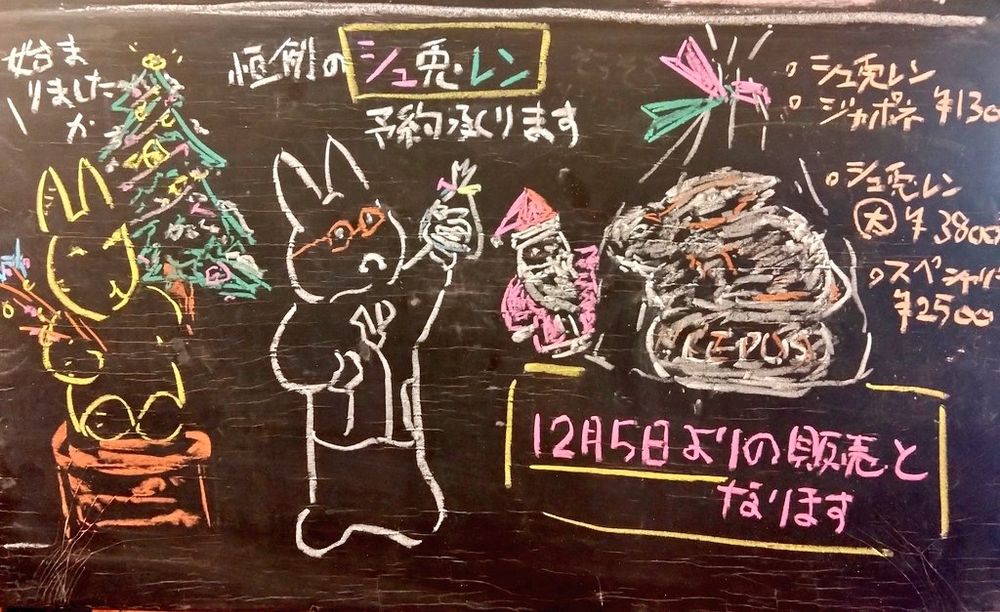 始ま
りました
か
恒例のシュ兎レン
予約承ります
○シュ兎レン
○ジャポネ ¥130
○シュ兎レン
大 ¥3800
○スペシャル
¥2500
LEPUS
12月5日よりの販売と
なります